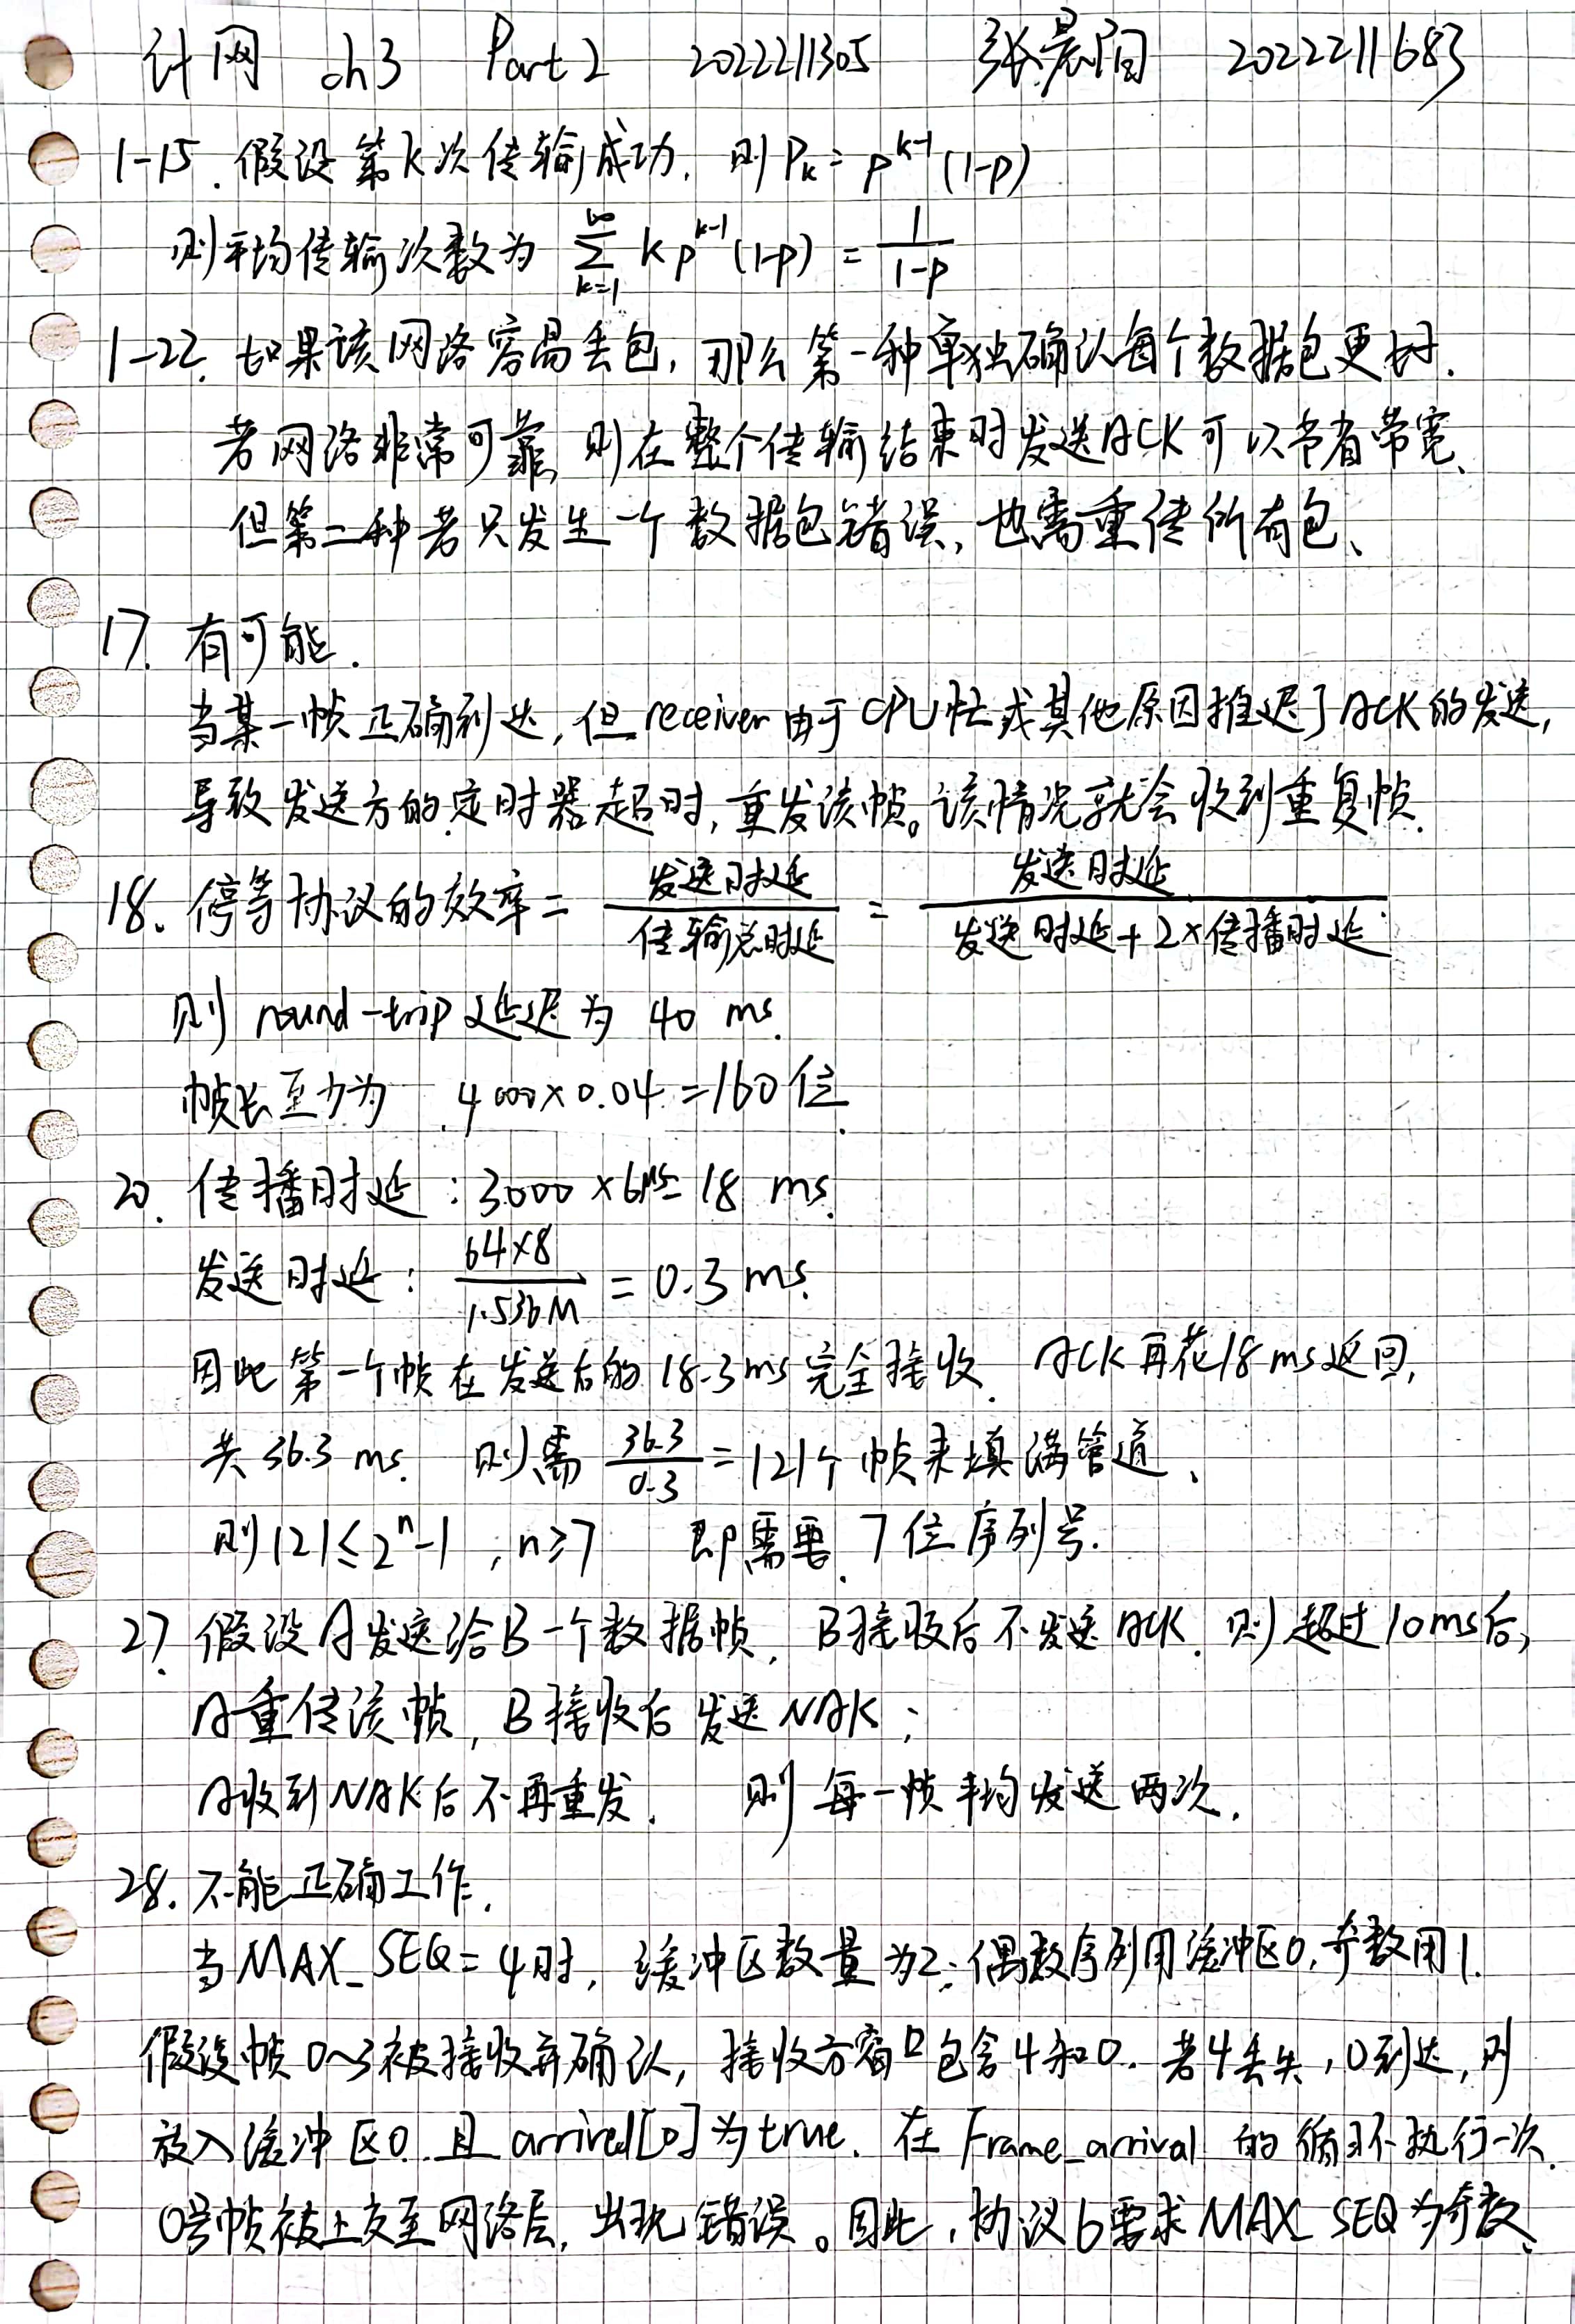 计网 ch3 Part 2 2022211305 张晨阳 2022211683
1-15. 假设第k次传输成功, 则 Pₖ = p^(k-1) (1-p)
则平均传输次数为 ∑_{k=1}^{∞} k p^(k-1) (1-p) = 1/(1-p)
1-22. 如果该网络容易丢包, 那么第一种单独确认每个数据包更好.
若网络非常可靠, 则在整个传输结束时发送ACK可以节省带宽、
但第二种若只发生一个数据包错误, 也需重传所有包、
17. 有可能.
当某一帧正确到达, 但 receiver 由于CPU忙或其他原因推迟了ACK的发送,
导致发送方的定时器超时, 重发该帧。该情况就会收到重复帧.
18. 停等协议的效率 = 发送时延/传输总时延 = 发送时延/(发送时延+2×传播时延)
则 round-trip 延迟为 40 ms.
帧长至少为 4000×0.04 =160位.
20. 传播时延 : 3000 ×6μs= 18 ms.
发送时延 : 64×8/1.536M = 0.3 ms.
因此第一个帧在发送后的 18.3ms 完全接收. ACK再花18 ms返回,
共 36.3 ms. 则需 36.3/0.3 = 121个帧来填满管道、
则 121 ≤ 2^n-1 , n≥7 即需要 7位序列号.
27. 假设A发送给B一个数据帧, B接收后不发送ACK. 则超过10ms后,
A重传该帧, B接收后发送NAK ;
A收到NAK后不再重发. 则每一帧平均发送两次.
28. 不能正确工作.
当 MAX_SEQ = 4时, 缓冲区数量为2; 偶数序列用缓冲区0, 奇数用1.
假设帧0~3被接收并确认, 接收方窗口包含4和0. 若4丢失, 0到达, 则
放入缓冲区0. 且 arrived[0] 为true. 在 Frame_arrival 的循环执行一次.
0号帧被上交至网络层, 出现错误。因此, 协议6要求 MAX_SEQ 为奇数、